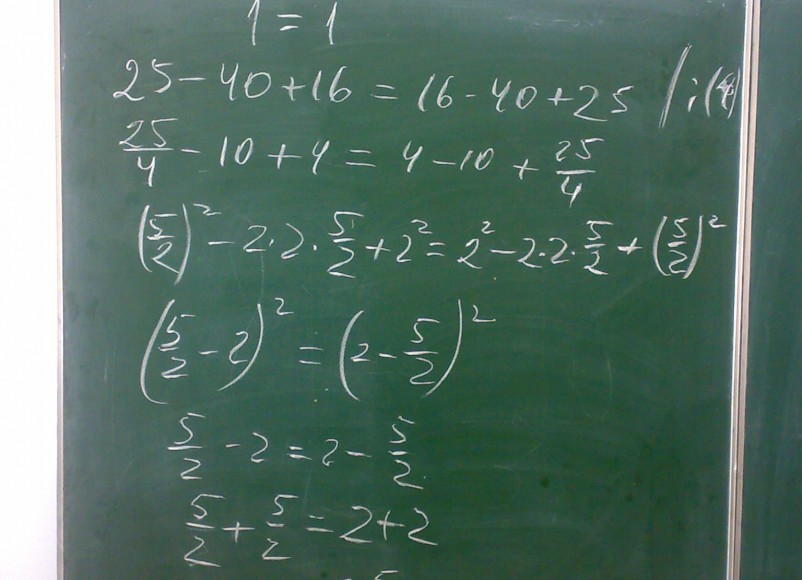 1 = 1
25 - 40 + 16 = 16 - 40 + 25 / : (4)
25/4 - 10 + 4 = 4 - 10 + 25/4
(5/2)² - 2·2·5/2 + 2² = 2² - 2·2·5/2 + (5/2)²
(5/2 - 2)² = (2 - 5/2)²
5/2 - 2 = 2 - 5/2
5/2 + 5/2 = 2 + 2